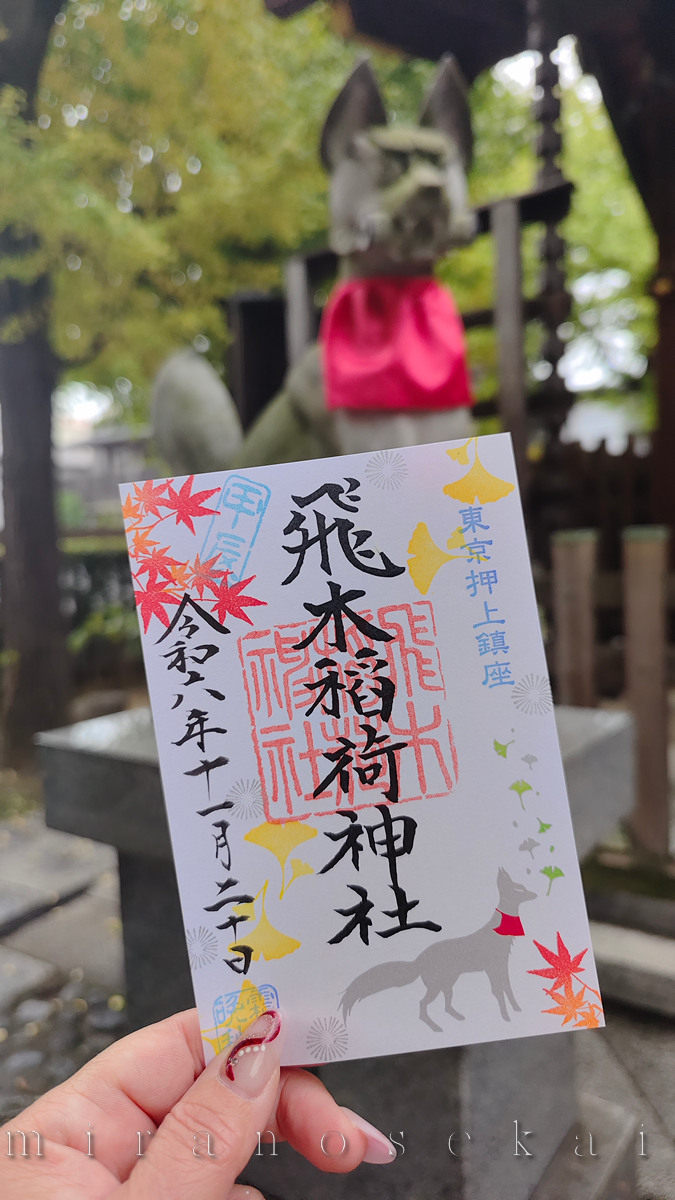 東京押上鎮座
飛木稲荷神社
飛木
稲荷
神社
甲辰
令和六年十一月二十日
霜月
miranosekai